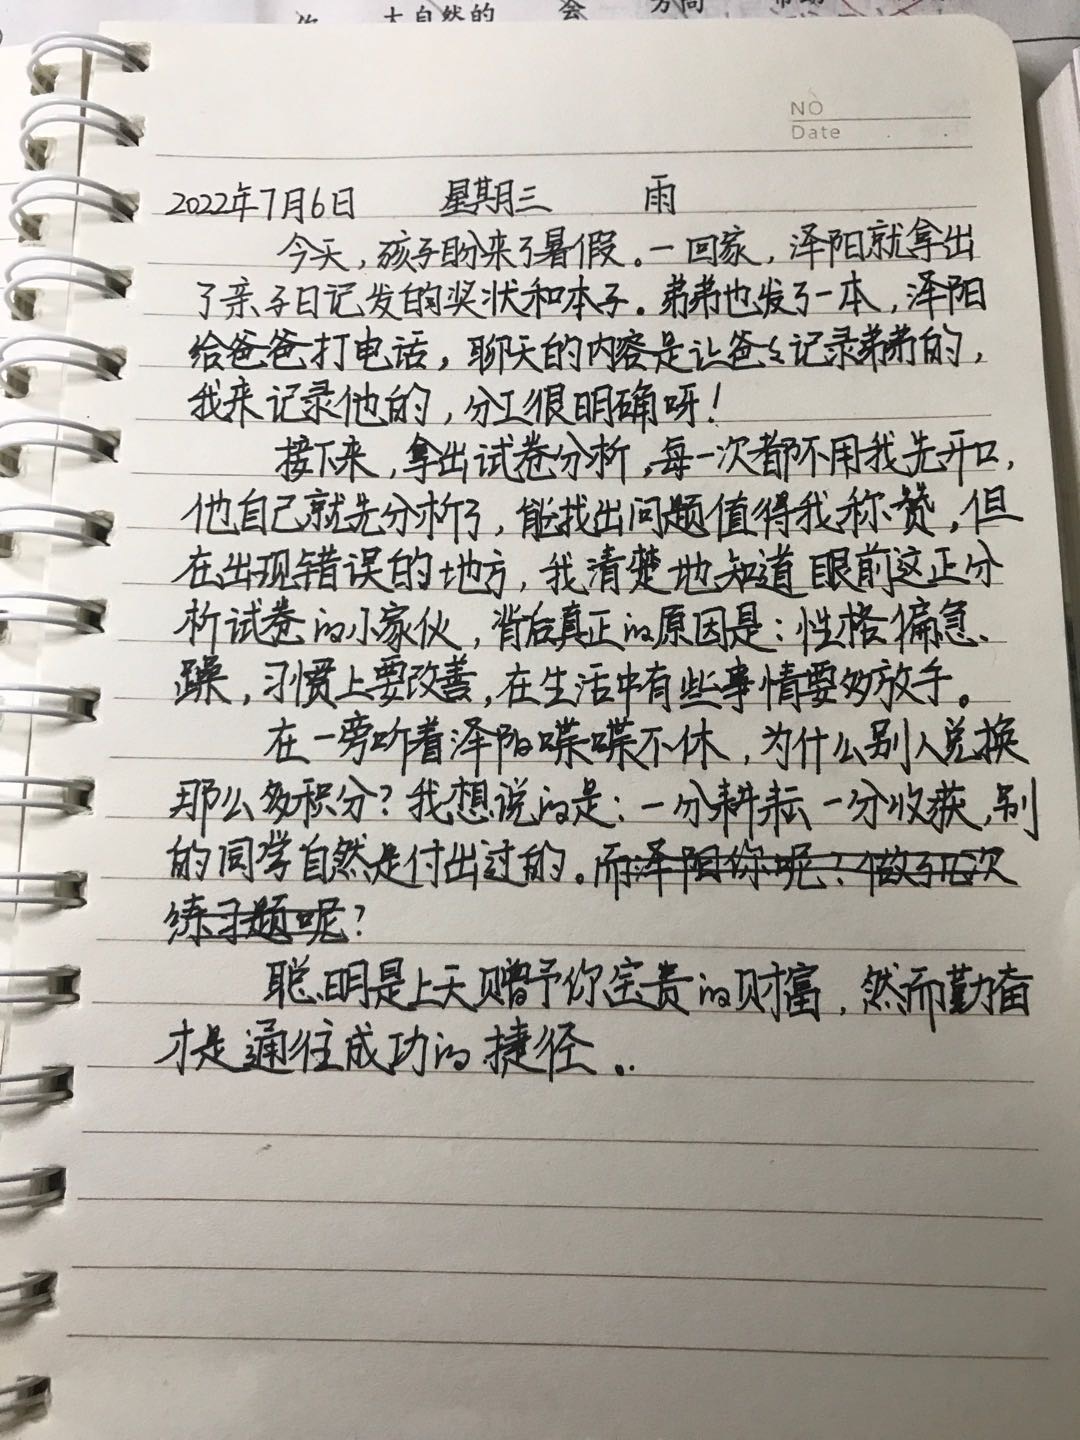 大自然的 会 方向 帮助
NO
Date
2022年7月6日 星期三 雨
今天,孩子盼来了暑假。一回家,泽阳就拿出
了亲子日记发的奖状和本子。弟弟也发了一本,泽阳
给爸爸打电话,聊天的内容是让爸々记录弟弟的,
我来记录他的,分工很明确呀!
接下来,拿出试卷分析,每一次都不用我先开口,
他自己就先分析了,能找出问题值得我称赞,但
在出现错误的地方,我清楚地知道眼前这正分
析试卷的小家伙,背后真正的原因是:性格偏急、
躁,习惯上要改善,在生活中有些事情要妈放手。
在一旁听着泽阳喋喋不休,为什么别人兑换
那么多积分?我想说的是:一分耕耘一分收获,别
的同学自然是付出过的。而泽阳你呢?做了几次
练习题呢?
聪明是上天赠予你宝贵的财富,然而勤奋
才是通往成功的捷径。.